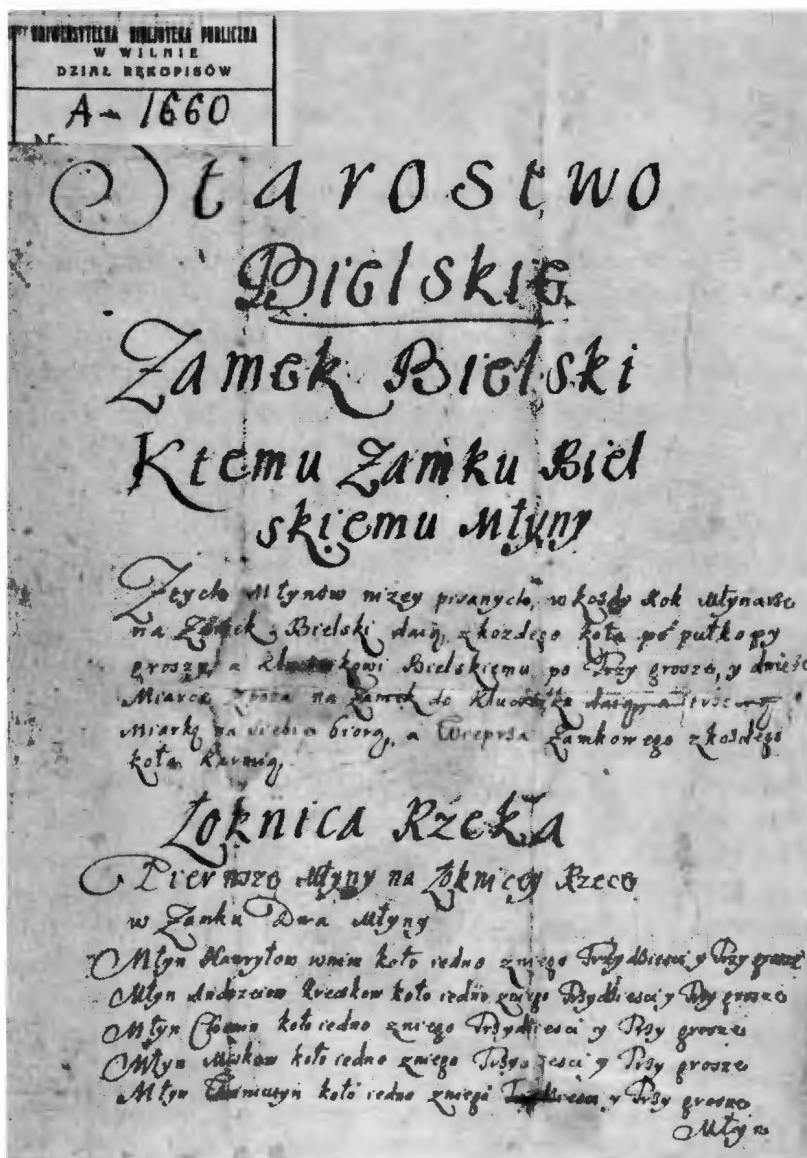 UNIWERSYTECKA BIBLJOTEKA PUBLICZNA
W WILNIE
DZIAŁ RĘKOPISÓW
A - 1660
Starostwo
Bielskie
Zamek Bielski
Ktemu Zamku Biel
skiemu Młyny
Ztych Młynów nizey pisanych, w kozdy Rok Młynarze
na Zamek Bielski daią, z kozdego koła po pułkopy
groszy, a Bielskiemu po Trzy grosze, y
Miarce zboza na Zamek do daią, a
Miarkę na siebie biorą, a Wieprza Zamkowego z kozdego
koła karmią,
Łoknica Rzeka
Pierwsze Młyny na Łoknicey Rzece
w Zamku Dwa Młyny
Młyn Hawryłow wnim koło iedno zniego Trzydziesci y Trzy grosze
Młyn koło iedno zniego Trzydziesci y Trzy grosze
Młyn koło iedno zniego Trzydziesci y Trzy grosze
Młyn koło iedno zniego Trzydziesci y Trzy grosze
Młyn koło iedno zniego Trzydziesci y Trzy grosze
Młyn